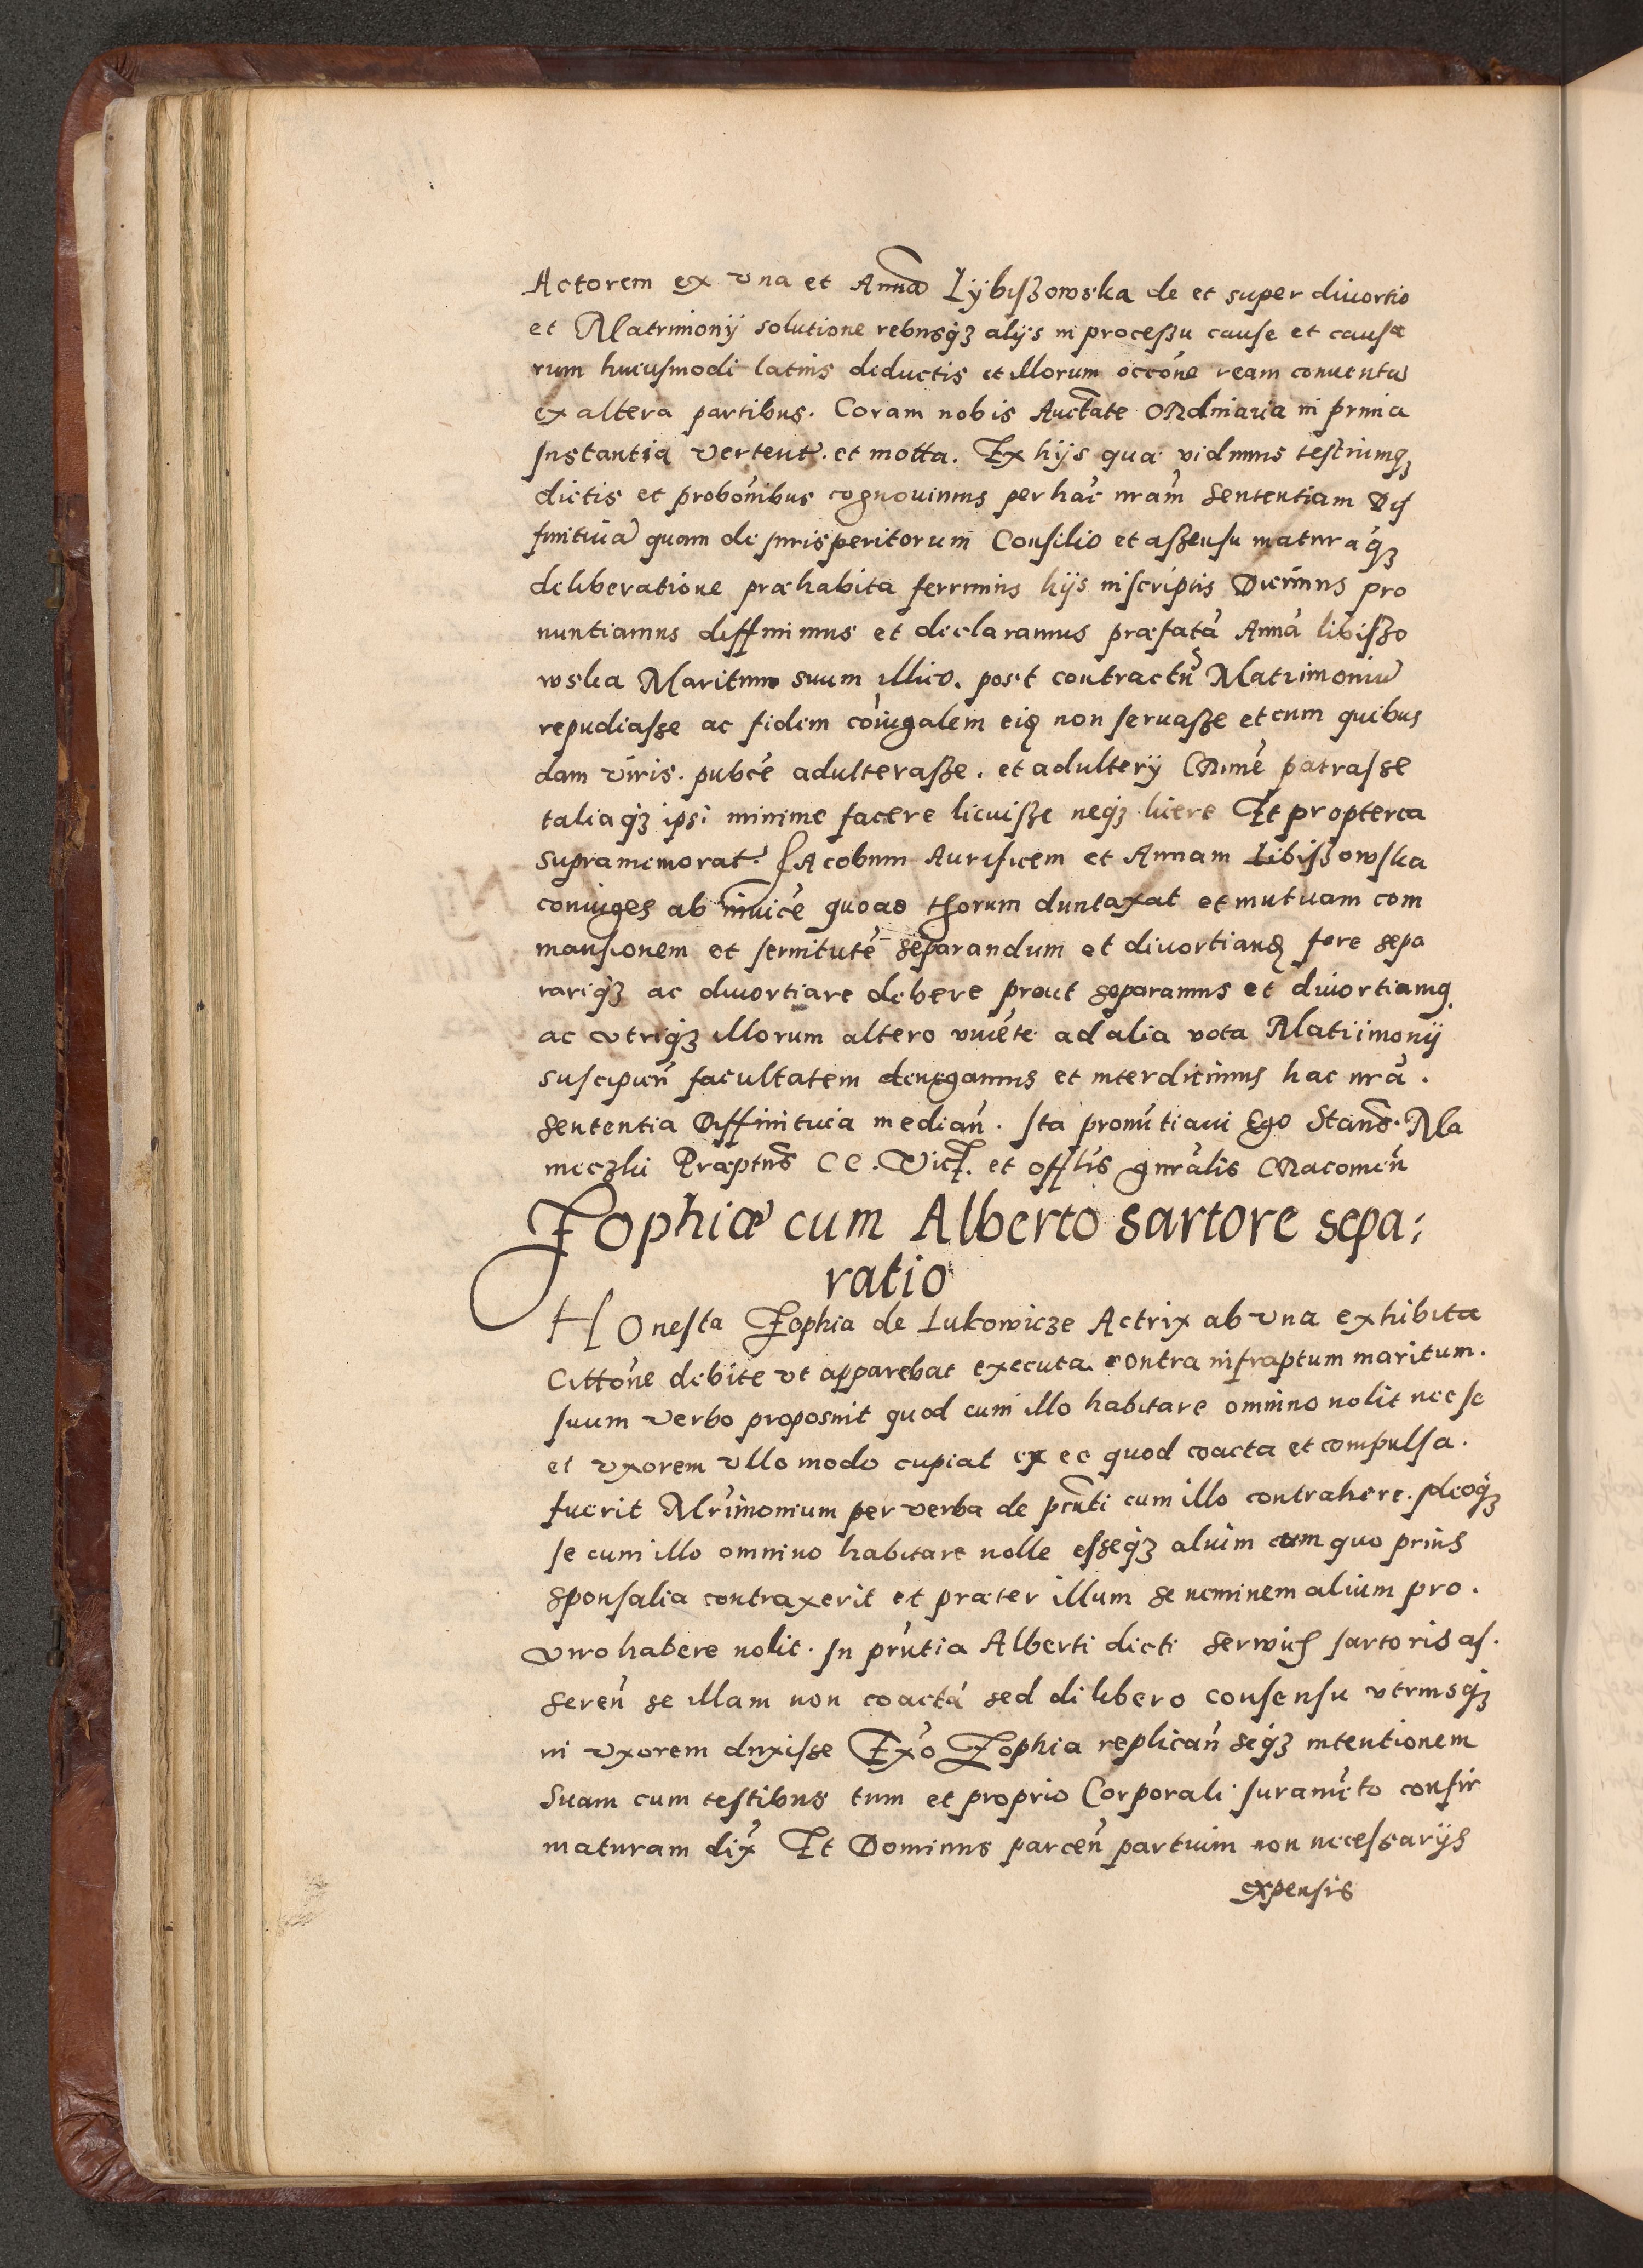 Actorem ex vna et Annā Lybiszowska de et super diuortio
et Matrimonij solutione rebusq3 alijs in processu cause et causa
rum huiusmodi latius deductis et illorum occōne ream conuentā
ex altera partibus. Coram nobis Auctāte Ordinaria in prima
Instantia vertent. et motta. Ex hijs quæ vidimus testiumq3
dictis et probōnibus cognouimus per hāc nrām Sententiam Dif
finitiuā quam de Jurisperitorum Consilio et assensu maturaq3
deliberatione præhabita ferimus hijs inscriptis Dicimus pro
nuntiamus diffinimus et declaramus præfatā Annā libiszo
wska Maritum suum illico. post contractū Matrimoniū
repudiasse ac fidem cōiugalem eiq non seruasse et cum quibus
dam viris. pubcē adulterasse. et adulterij Crimē patrasse
taliaq3 ipsi minime facere licuisse neq3 licere Et propterea
supramemorat. Jacobum Aurificem et Annam Libiszowska
coniuges ab inuicē quoad thorum duntaxat et mutuam com
mansionem et seruitutē separandum et diuortiand fore sepa
rariq3 ac diuortiare debere prout separamus et diuortiamq
ac vtriq3 illorum altero viuēte ad alia vota Matrimonij
suscipien̄ facultatem denegamus et interdicimus hac nrā.
sententia Diffinitiua median̄. Ita pronūtiaui Ego Stans. Ma
meczki Præptus CC. Vict. et offlis gnrālis Cracomen̄
Zophiæ cum Alberto sartore sepa:
ratio
Honesta Zophia de Lukowicze Actrix ab vna exhibita
Cittōne debite vt apparebat executa contra infraptum maritum.
suum verbo proposuit quod cum illo habitare omnino nolit nec se
ei vxorem vllo modo cupiat ex eo quod coacta et compulsa.
fuerit Mrimonium per verba de pn̄ti cum illo contrahere. Ideoq3
se cum illo omnino habitare nolle esseq3 alium cum quo prius
sponsalia contraxerit et præter illum se neminem alium pro.
viro habere nolit. In prn̄tia Alberti dicti Serwich sartoris as.
seren̄ se illam non coactā sed di libero consensu vtriusq3
in vxorem duxisse Exō Zophia replican̄ seq3 intentionem
Suam cum testibus tum et proprio Corporali Juramēto confir
maturam dix Et Dominus parcen̄ partium non necessarijs
expensis